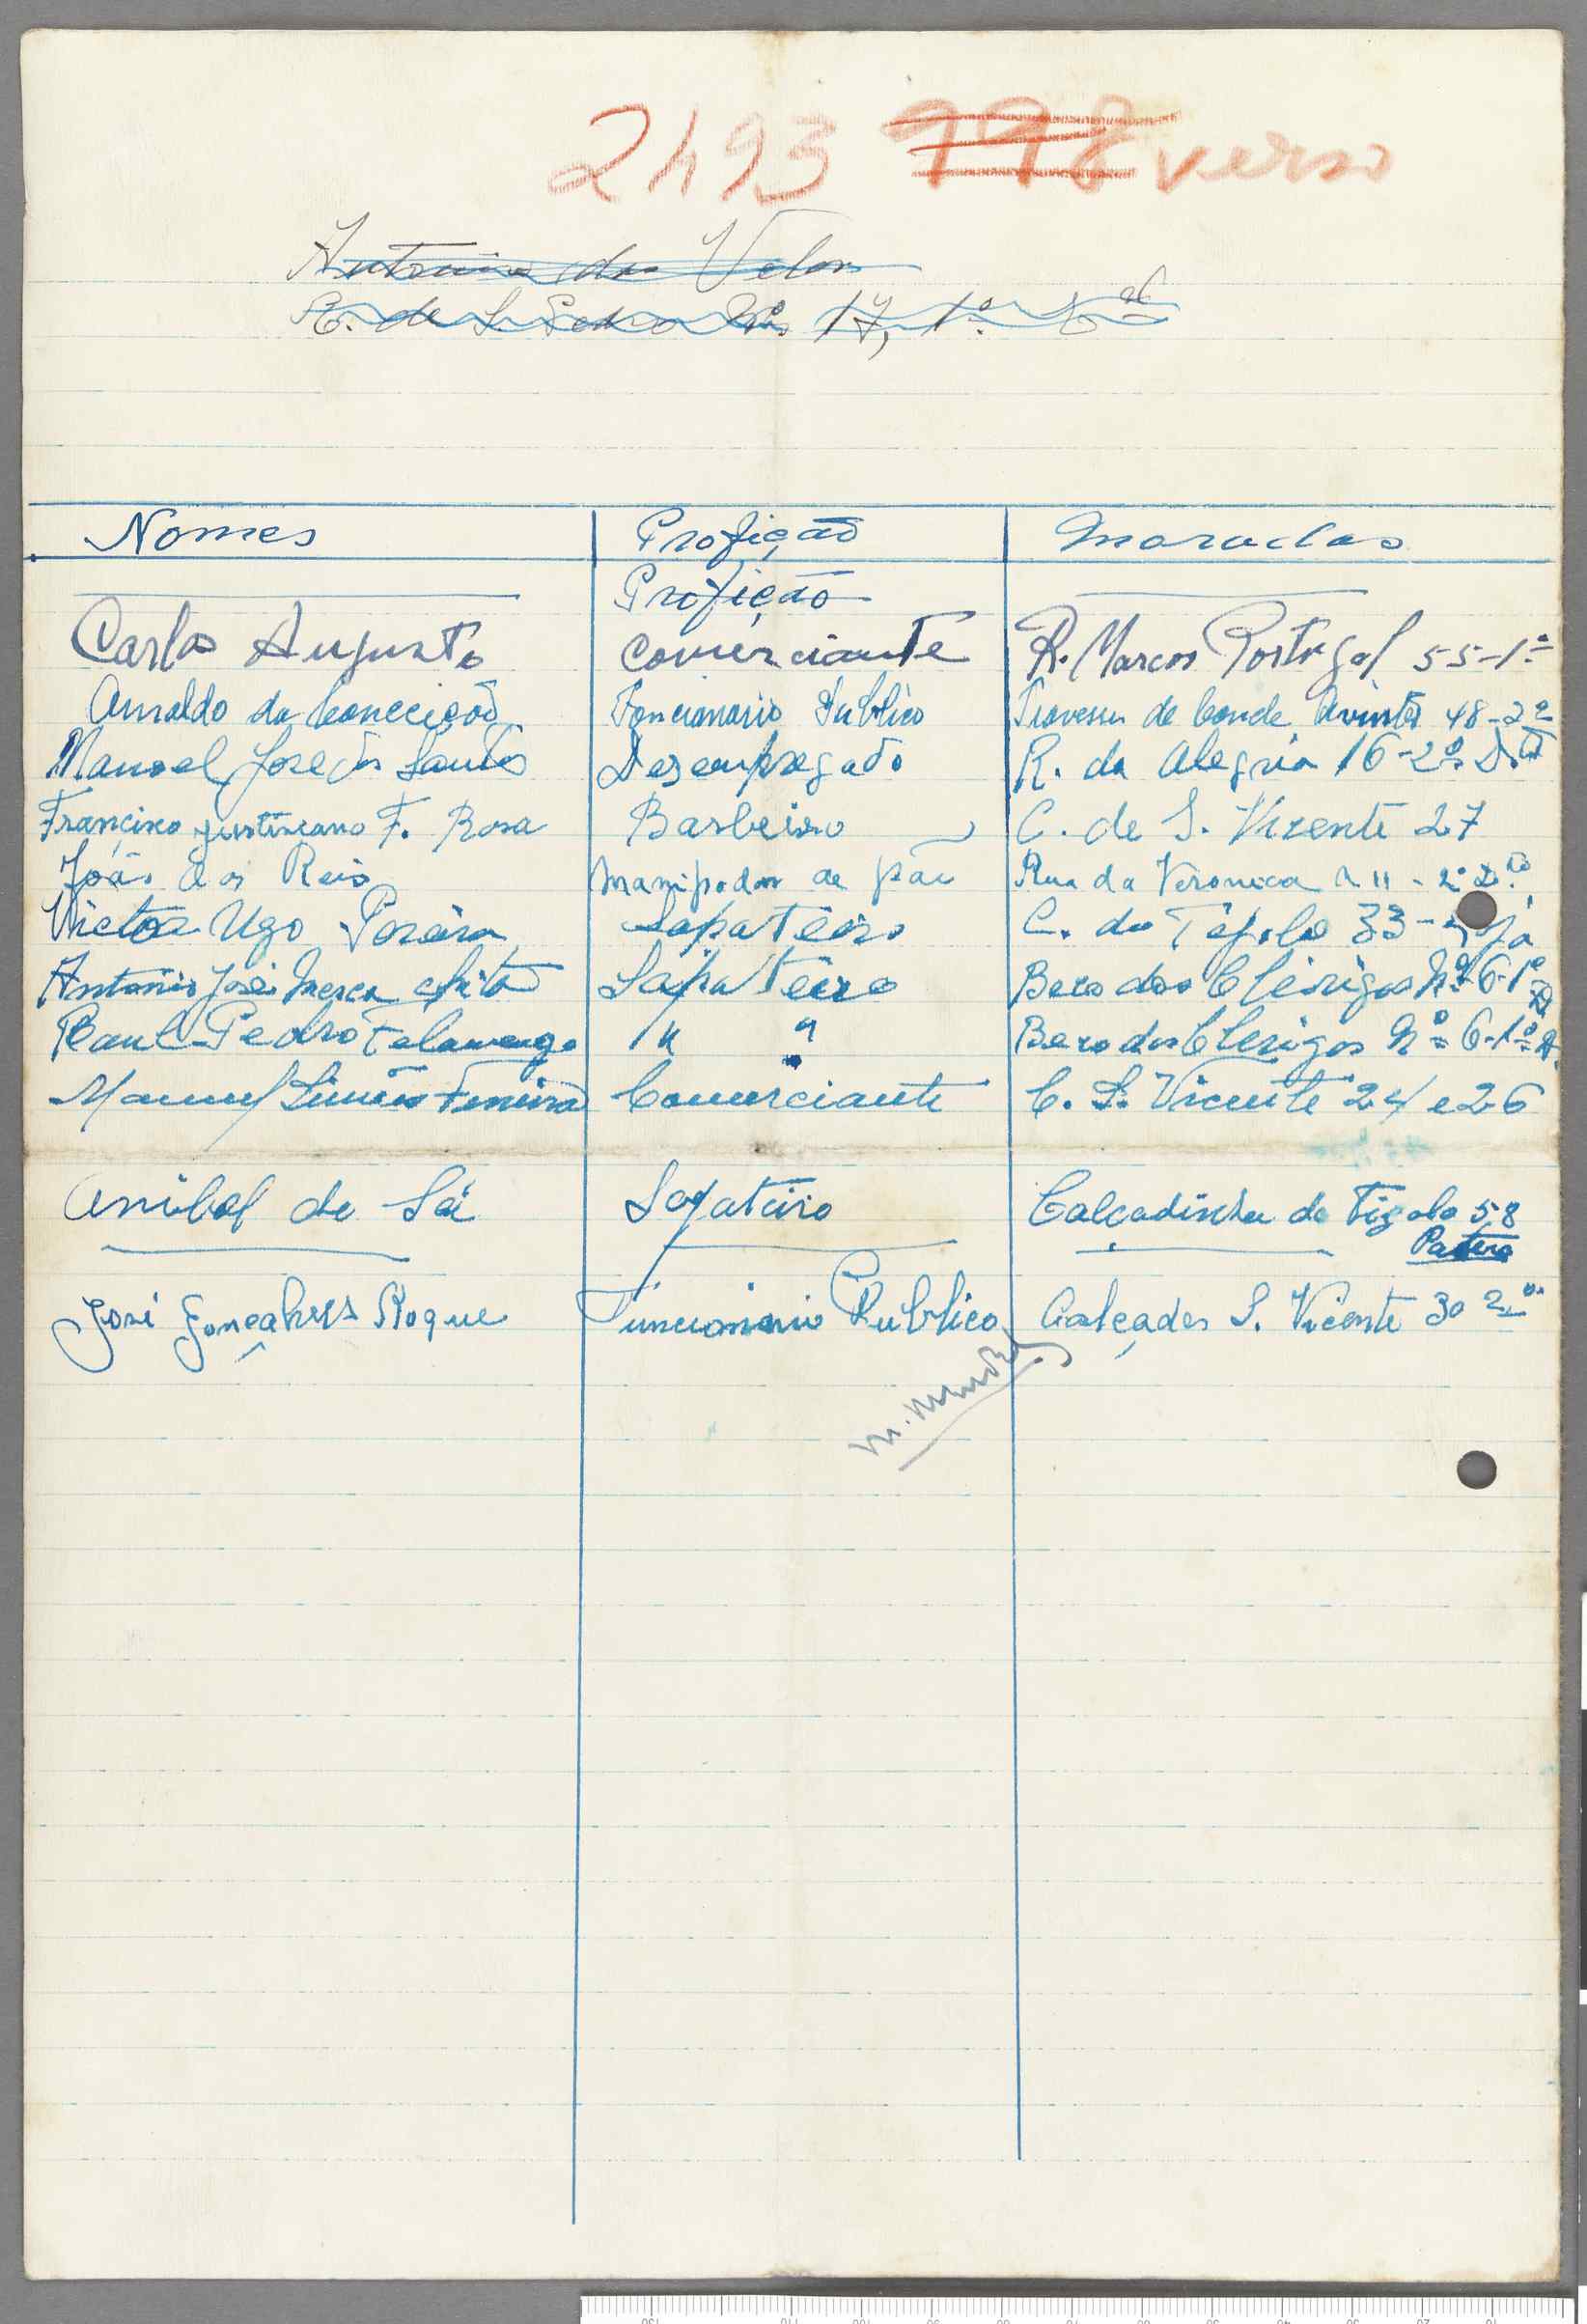 2493 998 verso
Antonio da
R. de S. Pedro 17, 1º
Nomes Profição Moradas
Profição
Carlos Augusto comerciante R. Marcos Portugal 55-1º
Arnaldo da Conceição Foncionario Publico Travessa do Conde Avintes 48-2º
Manoel José dos Santos Desempregado R. da Alegria 16-2º. D.to
Francisco justiniano F. Rosa Barbeiro C. de S. Vicente 27
João dos Reis manipador de pão Rua da Veronica n 11 - 2º D.to
Victor Ugo Pereira Sapateiro C. do Tijolo 33-
Antonio José Sapateiro Beco dos Clérigos Nº 6-1º D.
Raul Pedro Falamengo " " Beco dos Clerigos Nº 6-1º D.
Manuel Simões Ferreira Comerciante C. S. Vicente 24 e 26
Anibal de Sá Sapateiro Calçadinha do Tigolo 58
José Gonçalves Roque Funcionario Publico Calçada S. Vicente 30 2º